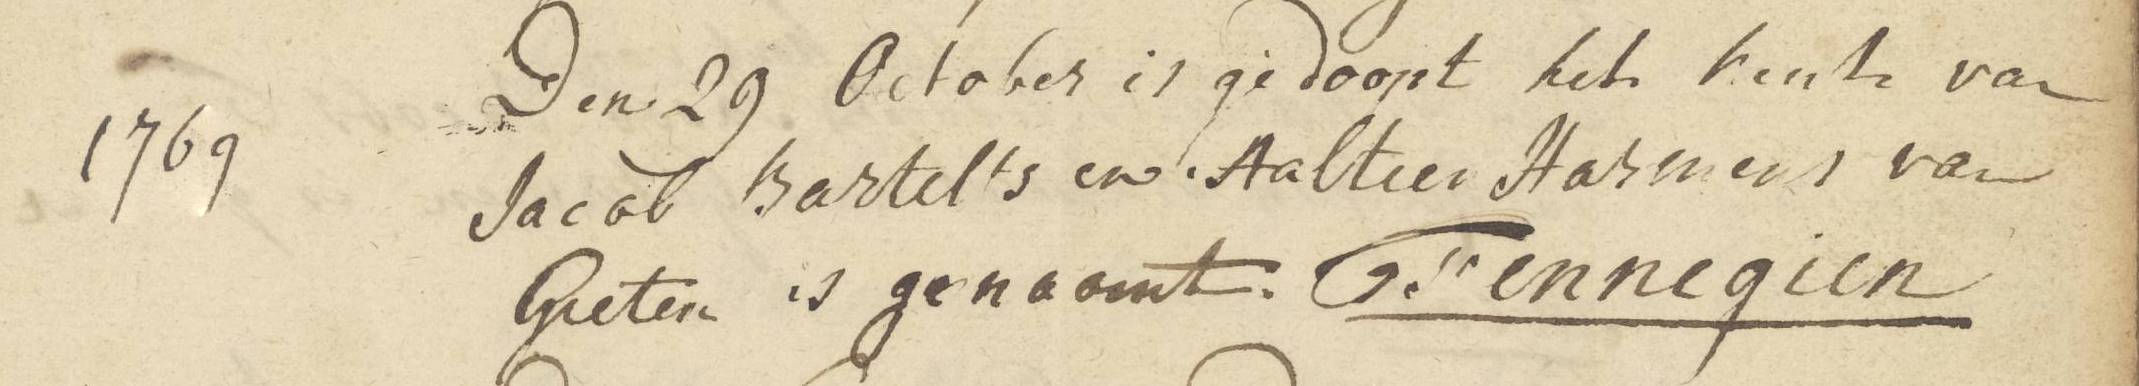 1769
Den 29 October is gedoopt het kent van
Jacob Bartelts en Aaltien Harmens van
Gieten is genaamt. Fennegien